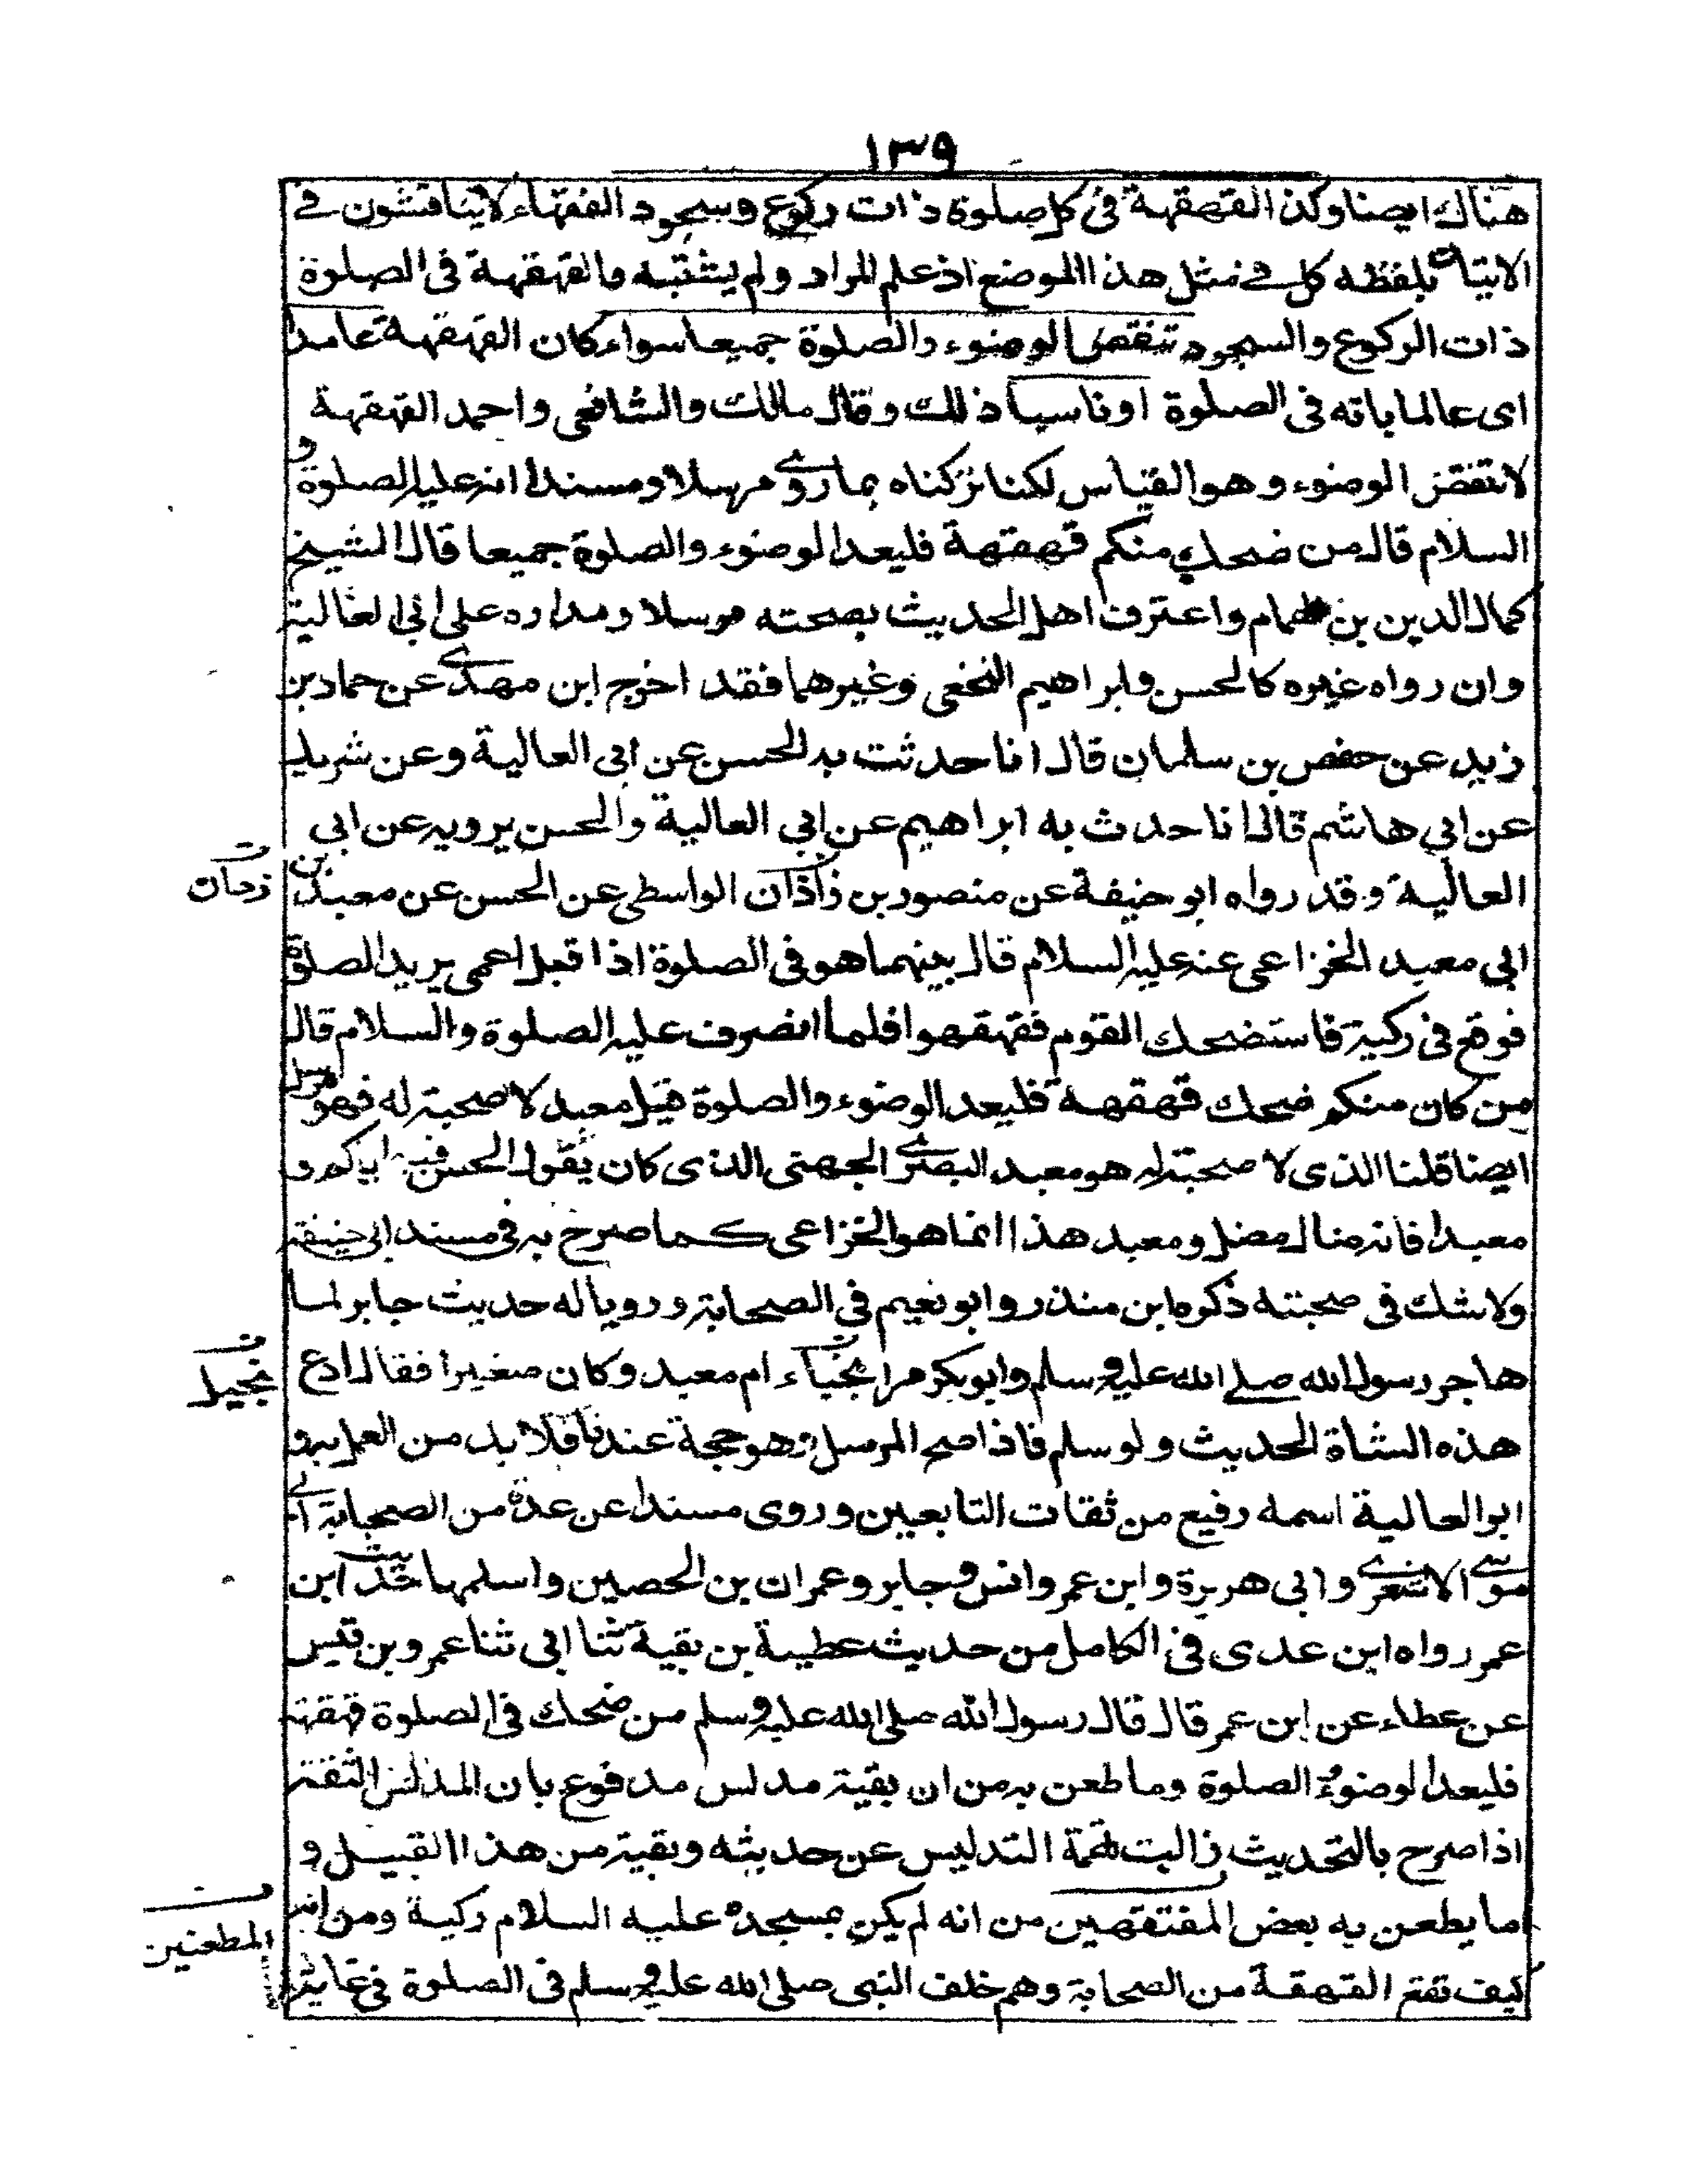 ١٣٩
هناك ايضا وكذا القهقهة فى كل صلوة ذات ركوع وسجود الفقهاء لا يناقشون فے
الاتيان بلفظه كل فے مثل هذا الموضع اذ علم المراد ولم يشتبه والقهقهة فى الصلوة
ذات الركوع والسجود تنقض الوضوء والصلوة جميعا سواء كان القهقهة عامدا
اى عالما باته فى الصلوة او ناسيا ذلك وقال مالك والشافعى واحمد القهقهة
لا تنقض الوضوء وهو القياس لكنا تركناه بما روے مرسلا ومسندا انه عليه الصلوة و
السلام قال من ضحك منكم قهقهة فليعد الوضوء والصلوة جميعا قال الشيخ
كمال الدين بن همام واعترف اهل الحديث بصحته مرسلا ومداره على ابى العالية
وان رواه غيره كالحسن وابراهيم النخعى وغيرهما فقد اخرج ابن مهدے عن حماد بن
زيد عن حفص بن سلمان قال انا حدثت به الحسن عن ابى العالية وعن شريك
عن ابي هاشم قال انا حدث به ابراهيم عن ابي العالية والحسن يرويه عن ابى
العالية وقد رواه ابو حنيفة عن منصور بن زاذان الواسطى عن الحسن عن معبد بن
ابى معبد الخزاعى عنه عليه السلام قال بينهما هو فى الصلوة اذا قبل اعمى يريد الصلوة
فوقع فى ركية فاستضحك القوم فقهقهوا فلما انصرف عليه الصلوة والسلام قال
من كان منكم ضحك قهقهة فليعد الوضوء والصلوة قيل معبد لا صحبة له فهو مرسل
ايضا قلنا الذى لا صحبة له هو معبد البصرے الجهنى الذى كان يقول الحسن فيه اياكم و
معبدا فانه ضال مضل ومعبد هذا انما هو الخزاعى كما صرح به فى مسند ابى حنيفة
ولا شك فى صحبته ذكره ابن منذر وابو نعيم فى الصحابة ورويا له حديث جابر لما
هاجر رسول الله صلے الله عليه وسلم وابو بكر مرا بخباء ام معبد وكان صغيرا فقال ادع
هذه الشاة الحديث ولو سلم فاذا صح المرسل وهو حجة عندنا فلا بد من العمل به و
ابو العالية اسمه رفيع من ثقات التابعين وروى مسندا عن عدة من الصحابة ابے
موسے الاشعرے وابى هريرة وابن عمر وانس وجابر وعمران بن الحصين واسلمها حديث ابن
عمر رواه ابن عدى فى الكامل من حديث عطية بن بقية ثنا ابى ثنا عمرو بن قيس
عن عطاء عن ابن عمر قال قال رسول الله صلى الله عليه وسلم من ضحك فى الصلوة قهقهة
فليعد الوضوء والصلوة وما طعن به من ان بقية مدلس مدفوع بان المدلس الثقة
اذا صرح بالتحديث زالت تهمة التدليس عن حديثه وبقية من هذا القبيل و
اما يطعن به بعض المفتقهين من انه لم يكن بمسجده عليه السلام ركية ومن انه
كيف تقع القهقة من الصحابة وهم خلف النبى صلى الله عليه وسلم فى الصلوة فى غاية
ن
زدمان
ن
المطعنين